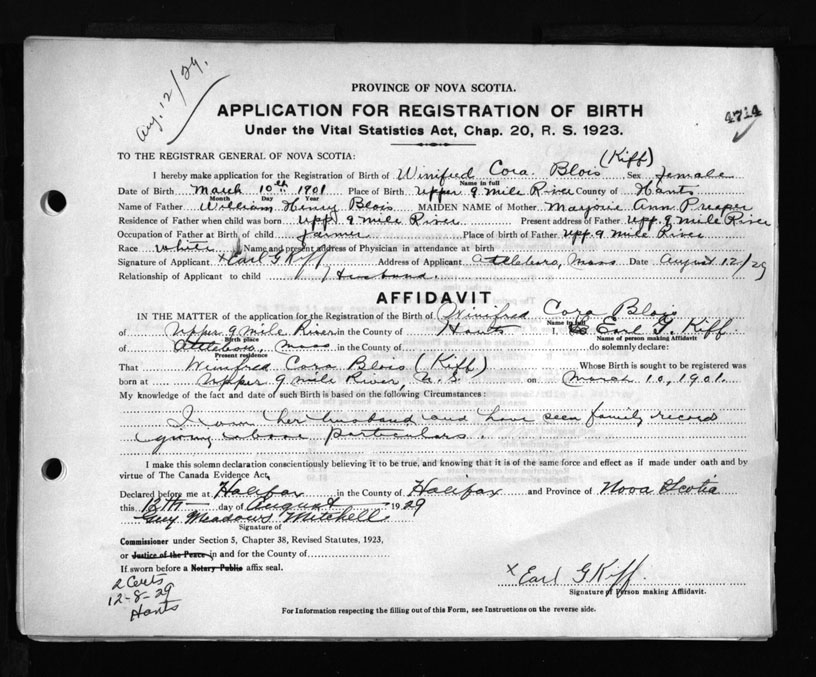 Aug. 12/29.
PROVINCE OF NOVA SCOTIA.
4714
APPLICATION FOR REGISTRATION OF BIRTH
Under the Vital Statistics Act, Chap. 20, R. S. 1923.
TO THE REGISTRAR GENERAL OF NOVA SCOTIA:
(Kiff)
I hereby make application for the Registration of Birth of Winifred Cora Blois Sex female
Name in full
Date of Birth March 10th 1901 Place of Birth Upper 9 mile River County of Hants
Month Day Year
Name of Father William Henry Blois MAIDEN NAME of Mother Marjorie Ann
Residence of Father when child was born Upp. 9 mile River Present address of Father Upp. 9 mile River
Occupation of Father at Birth of child farmer Place of birth of Father Upp. 9 mile River
Race white Name and present address of Physician in attendance at birth
Signature of Applicant x Earl G Kiff Address of Applicant Attleboro, Mass Date August 12/29
Relationship of Applicant to child Husband.
AFFIDAVIT
IN THE MATTER of the application for the Registration of Birth of Winifred Cora Blois
Name in full
of Upper 9 mile River in the County of Hants I, Earl G. Kiff
Birth place Name of person making Affidavit
of Attleboro, Mass in the County of do solemnly declare:
Present residence
That Winifred Cora Blois (Kiff) Whose Birth is sought to be registered was
born at Upper 9 mile River, N.S. on March 10, 1901.
My knowledge of the fact and date of such Birth is based on the following Circumstances:
I am her husband and have seen family record
giving above particulars.
I make this solemn declaration conscientiously believing it to be true, and knowing that it is of the same force and effect as if made under oath and by
virtue of The Canada Evidence Act,
Declared before me at Halifax in the County of Halifax and Province of Nova Scotia
this 12th day of August 1929
Guy Meadows Mitchell
Signature of
Commissioner under Section 5, Chapter 38, Revised Statutes, 1923,
or Justice of the Peace in and for the County of
If sworn before a Notary Public affix seal.
2 Certs
12-8-29
Hants
x Earl G Kiff.
Signature of Person making Affidavit.
For Information respecting the filling out of this Form, see Instructions on the reverse side.